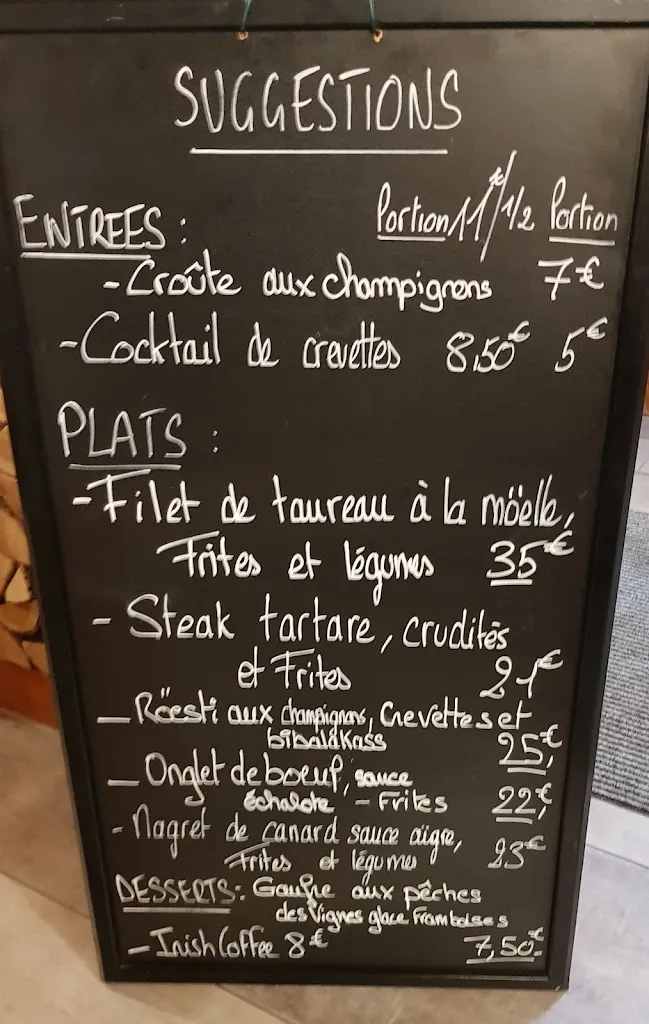 SUGGESTIONS
ENTREES : Portion / 1/2 Portion
- Croûte aux champignons 7€
- Cocktail de crevettes 8,50€ 5€
PLATS :
- Filet de taureau à la möelle,
Frites et légumes 35€
- Steak tartare, crudités
et Frites 21€
- Röesti aux champignons, Crevettes et
bibaläkass 25€
- Onglet de boeuf, sauce
échalote - Frites 22€
- Magret de canard sauce aigre,
Frites et légumes 23€
DESSERTS : Gaufre aux pêches
des Vignes glace Framboises
- Irish Coffee 8€ 7,50€